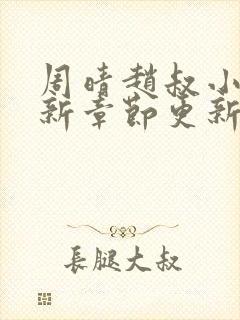 周晴趙叔小
新章節更新
長腿大叔